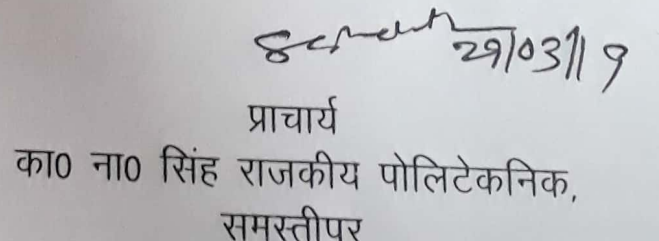 29/03/19
प्राचार्य
का0 ना0 सिंह राजकीय पोलिटेकनिक,
समस्तीपुर